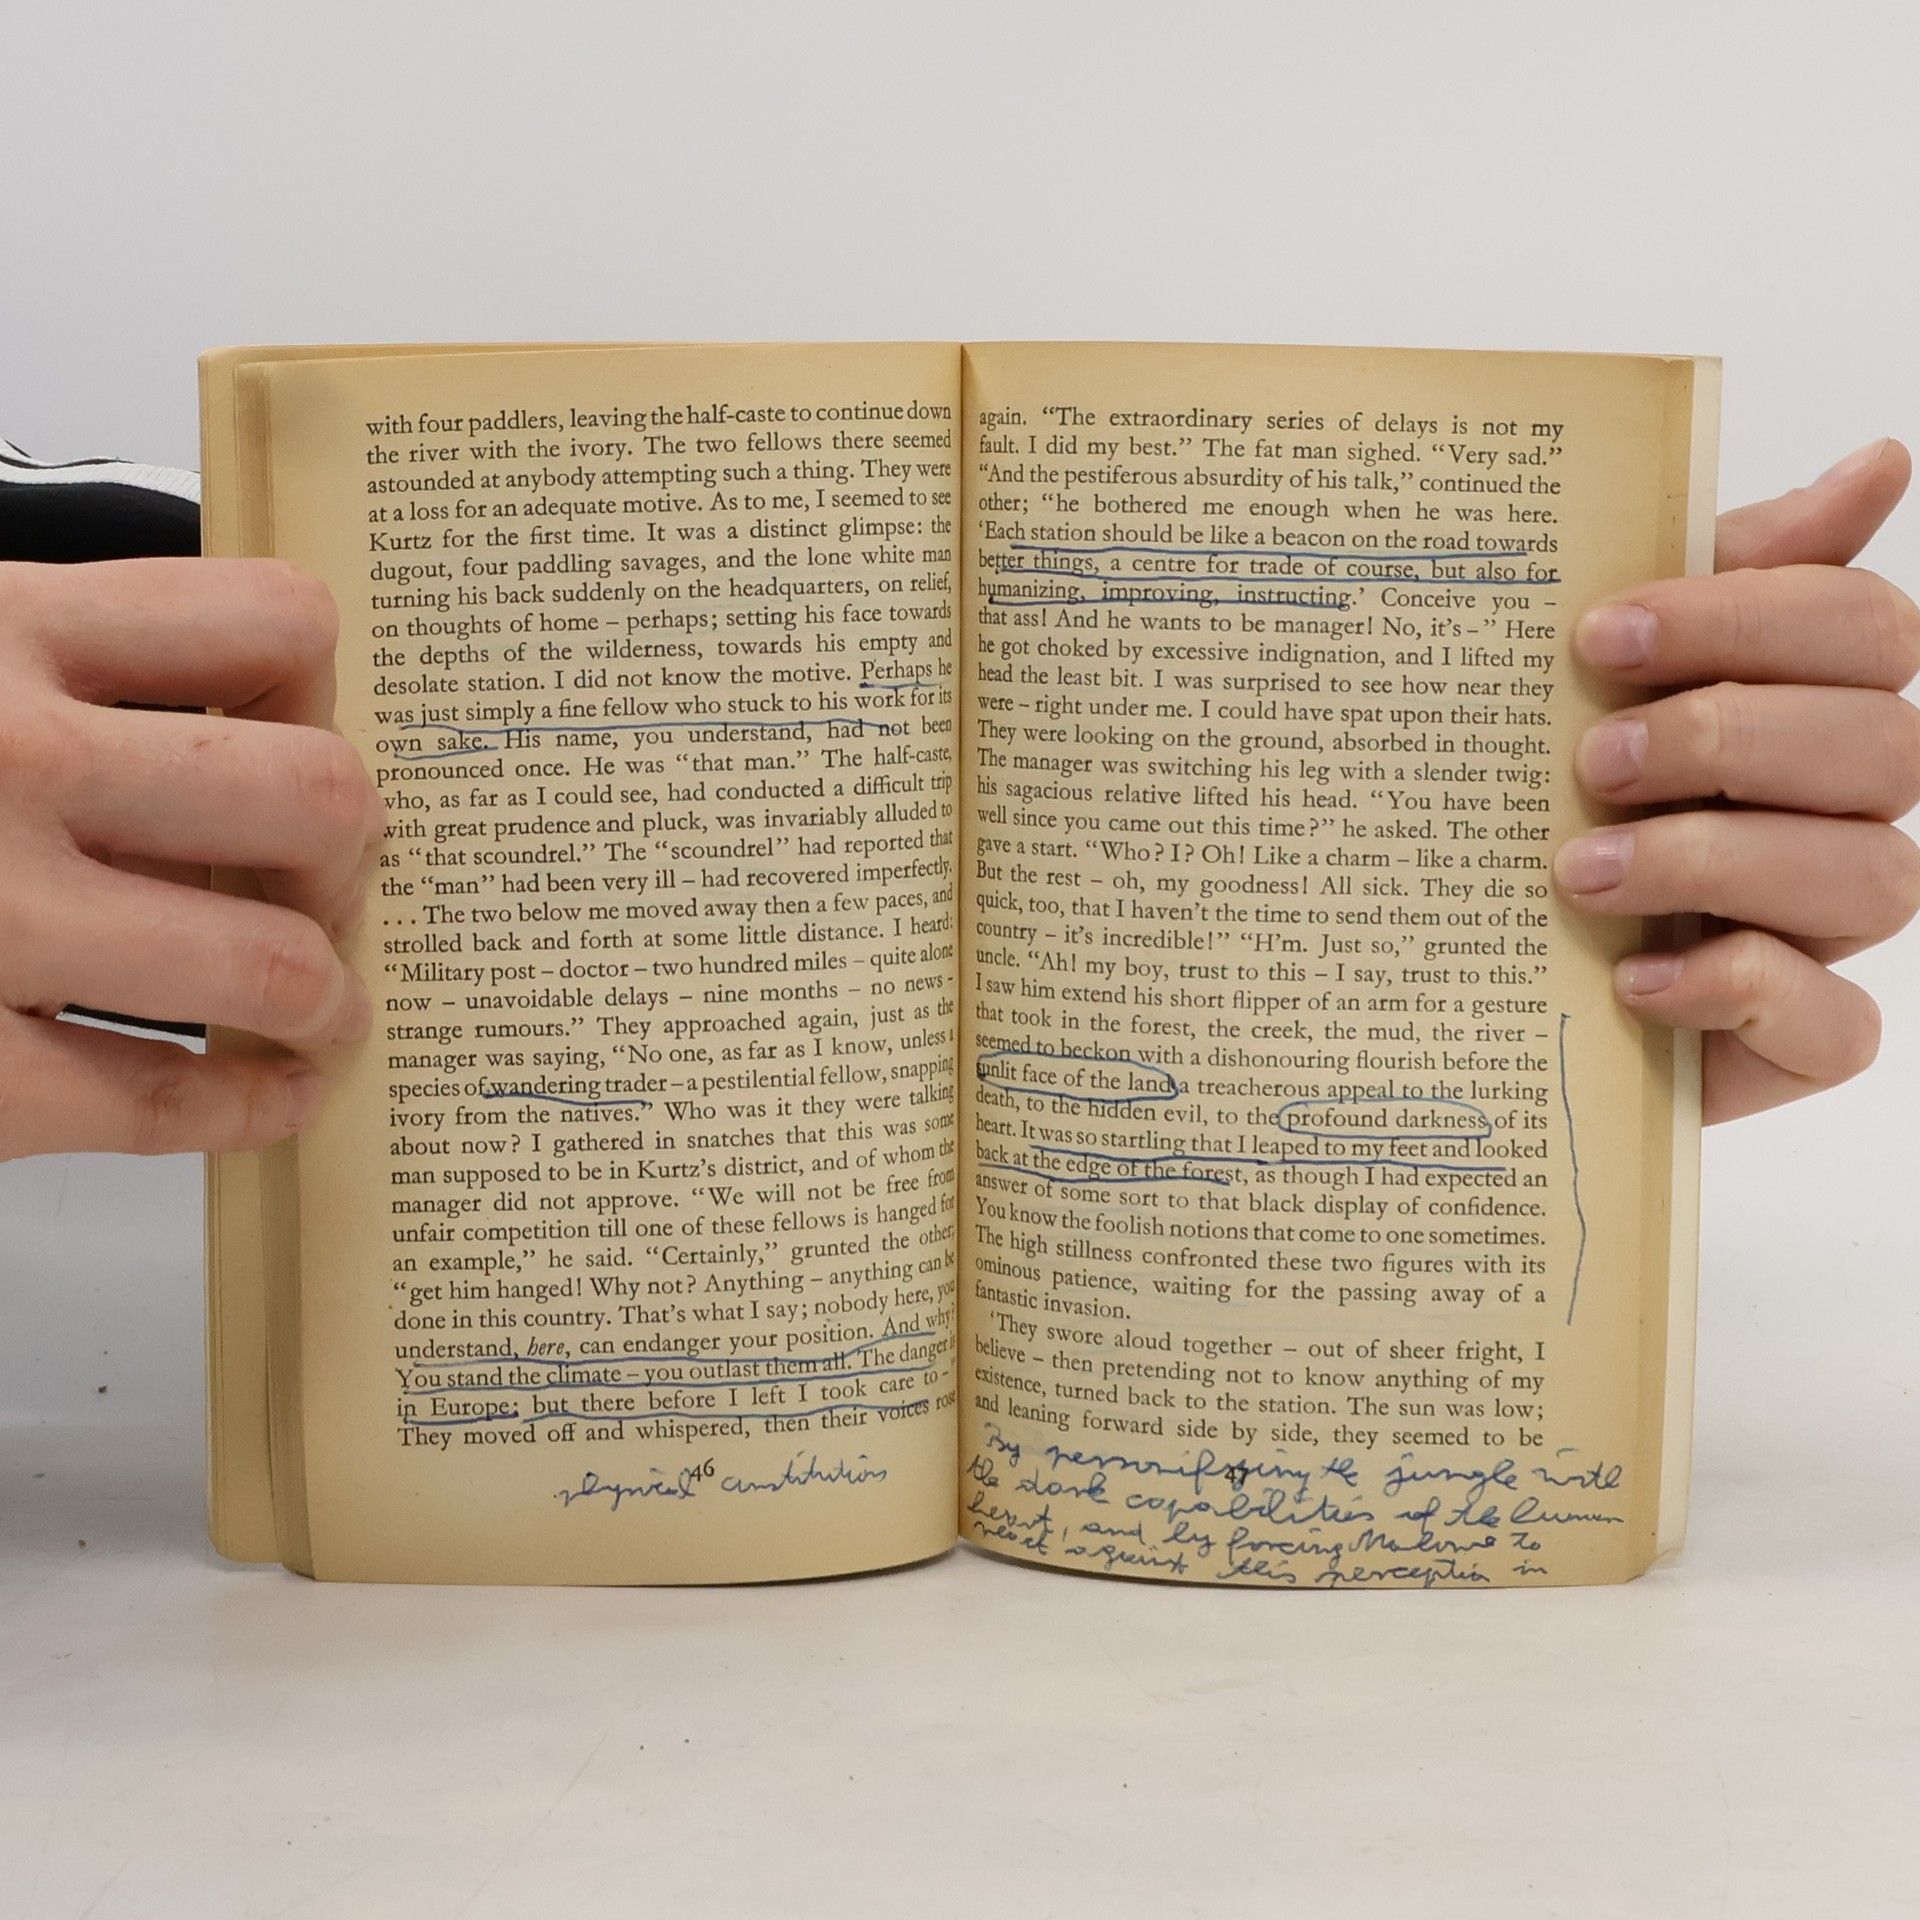 with four paddlers, leaving the half-caste to continue down
the river with the ivory. The two fellows there seemed
astounded at anybody attempting such a thing. They were
at a loss for an adequate motive. As to me, I seemed to see
Kurtz for the first time. It was a distinct glimpse: the
dugout, four paddling savages, and the lone white man
turning his back suddenly on the headquarters, on relief,
on thoughts of home – perhaps; setting his face towards
the depths of the wilderness, towards his empty and
desolate station. I did not know the motive. Perhaps he
was just simply a fine fellow who stuck to his work for its
own sake. His name, you understand, had not been
pronounced once. He was “that man.” The half-caste,
who, as far as I could see, had conducted a difficult trip
with great prudence and pluck, was invariably alluded to
as “that scoundrel.” The “scoundrel” had reported that
the “man” had been very ill – had recovered imperfectly.
... The two below me moved away then a few paces, and
strolled back and forth at some little distance. I heard:
“Military post – doctor – two hundred miles – quite alone
now – unavoidable delays – nine months – no news –
strange rumours.” They approached again, just as the
manager was saying, “No one, as far as I know, unless a
species of wandering trader – a pestilential fellow, snapping
ivory from the natives.” Who was it they were talking
about now? I gathered in snatches that this was some
man supposed to be in Kurtz’s district, and of whom the
manager did not approve. “We will not be free from
unfair competition till one of these fellows is hanged for
an example,” he said. “Certainly,” grunted the other;
“get him hanged! Why not? Anything – anything can be
done in this country. That’s what I say; nobody here, you
understand, here, can endanger your position. And why?
You stand the climate – you outlast them all. The danger is
in Europe; but there before I left I took care to – ”
They moved off and whispered, then their voices rose
46
physical constitution
again. “The extraordinary series of delays is not my
fault. I did my best.” The fat man sighed. “Very sad.”
“And the pestiferous absurdity of his talk,” continued the
other; “he bothered me enough when he was here.
‘Each station should be like a beacon on the road towards
better things, a centre for trade of course, but also for
humanizing, improving, instructing.’ Conceive you –
that ass! And he wants to be manager! No, it’s – ” Here
he got choked by excessive indignation, and I lifted my
head the least bit. I was surprised to see how near they
were – right under me. I could have spat upon their hats.
They were looking on the ground, absorbed in thought.
The manager was switching his leg with a slender twig:
his sagacious relative lifted his head. “You have been
well since you came out this time?” he asked. The other
gave a start. “Who? I? Oh! Like a charm – like a charm.
But the rest – oh, my goodness! All sick. They die so
quick, too, that I haven’t the time to send them out of the
country – it’s incredible!” “H’m. Just so,” grunted the
uncle. “Ah! my boy, trust to this – I say, trust to this.”
I saw him extend his short flipper of an arm for a gesture
that took in the forest, the creek, the mud, the river –
seemed to beckon with a dishonouring flourish before the
sunlit face of the land a treacherous appeal to the lurking
death, to the hidden evil, to the profound darkness of its
heart. It was so startling that I leaped to my feet and looked
back at the edge of the forest, as though I had expected an
answer of some sort to that black display of confidence.
You know the foolish notions that come to one sometimes.
The high stillness confronted these two figures with its
ominous patience, waiting for the passing away of a
fantastic invasion.
‘They swore aloud together – out of sheer fright, I
believe – then pretending not to know anything of my
existence, turned back to the station. The sun was low;
and leaning forward side by side, they seemed to be
47
By personifying the jungle with
the dark capabilities of the human
heart, and by forcing Marlowe to
react against this perception in